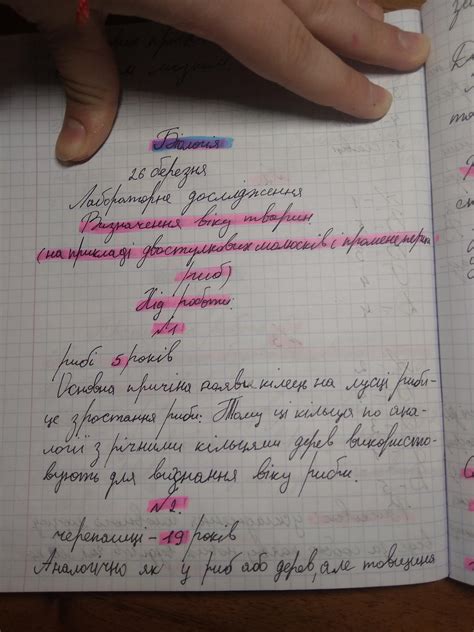 Біологія
26 березня
Лабораторне дослідження
Визначення віку тварин
(на прикладі двостулкових молюсків і променеперих
риб)
Хід роботи:
№1
рибі 5 років
Основна причина появи кілець на лусці риби-
це зростання риби. Тому ці кільця по ана-
логії з річними кільцями дерев використо-
вують для визнання віку риби.
№2.
черепашці - 19 років
Аналогічно як у риб або дерев, але товщина